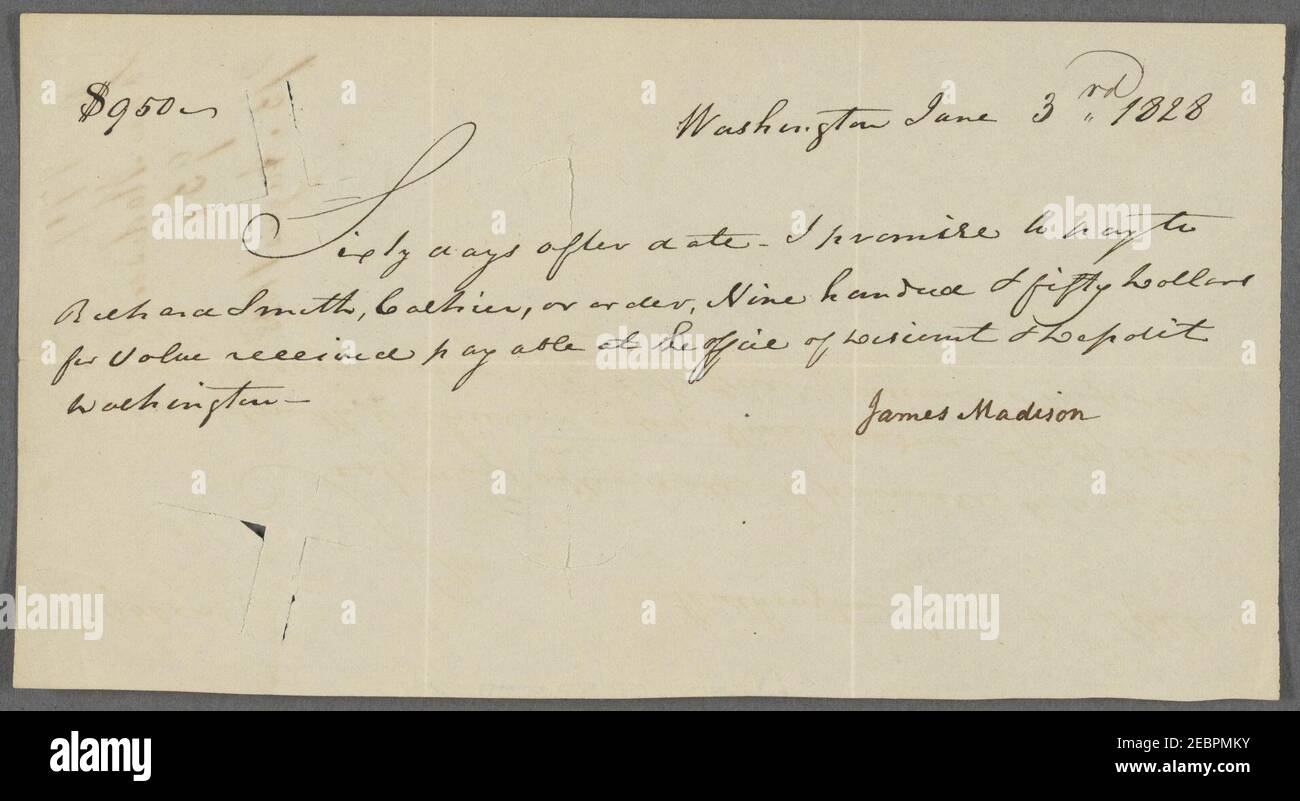 $950
Washington June 3rd 1828
Sixty days after date - I promise to pay to
Richard Smith, Cashier, or order, Nine hundred & fifty Dollars
for Value received payable at the office of Discount & Deposit
Washington —
James Madison
alamy
Image ID: 2EBPMKY
www.alamy.com